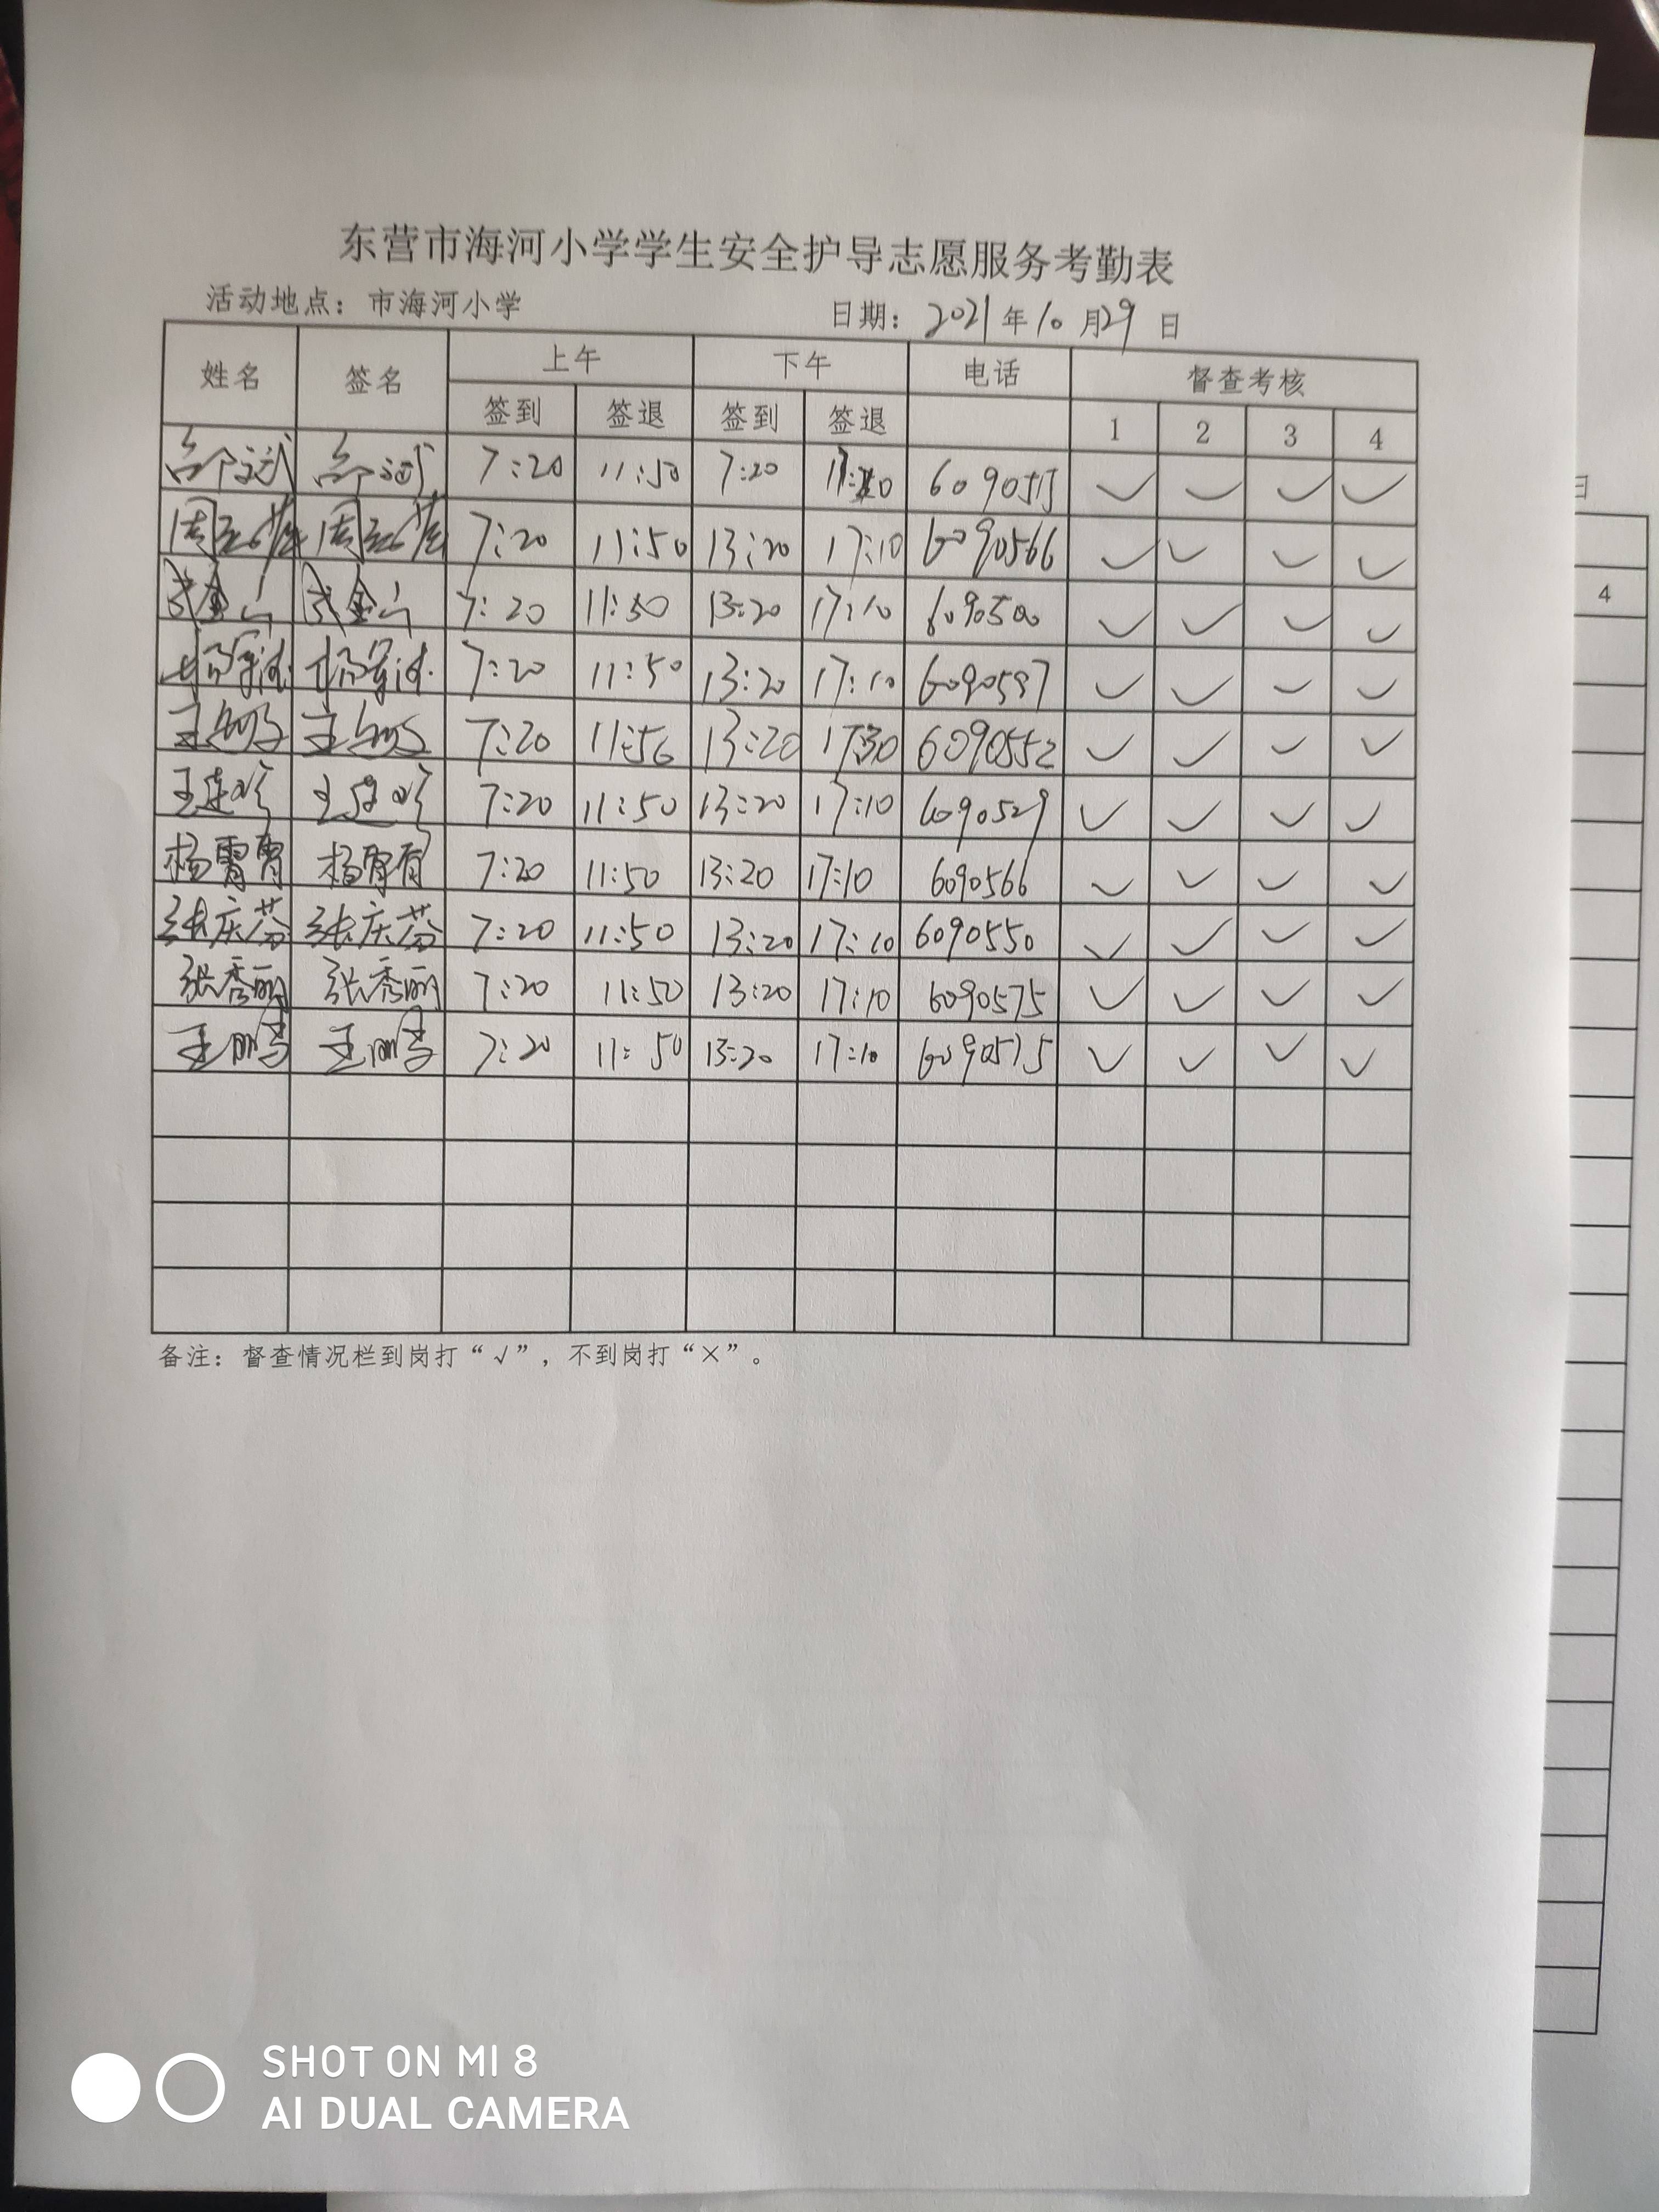 东营市海河小学学生安全护导志愿服务考勤表
活动地点：市海河小学 日期：2021年10月29日
姓名 签名 上午 下午 电话 督查考核
签到 签退 签到 签退 1 2 3 4
7:20 11:50 7:20 ✓ ✓ ✓ ✓
周 周 7:20 11:50 13:20 17:10 6090566 ✓ ✓ ✓ ✓
7:20 11:50 13:20 17:10 ✓ ✓ ✓ ✓
7:20 11:50 13:20 17:10 6090597 ✓ ✓ ✓ ✓
7:20 11:50 13:20 17:30 6090552 ✓ ✓ ✓ ✓
王连 王连 7:20 11:50 13:20 17:10 6090529 ✓ ✓ ✓ ✓
杨霄霄 杨霄霄 7:20 11:50 13:20 17:10 6090566 ✓ ✓ ✓ ✓
张庆芬 张庆芬 7:20 11:50 13:20 17:10 6090550 ✓ ✓ ✓ ✓
张秀丽 张秀丽 7:20 11:50 13:20 17:10 6090575 ✓ ✓ ✓ ✓
王鹏 王鹏 7:20 11:50 13:20 17:10 6090575 ✓ ✓ ✓ ✓
备注：督查情况栏到岗打“√”，不到岗打“×”。
日
4
SHOT ON MI 8
AI DUAL CAMERA